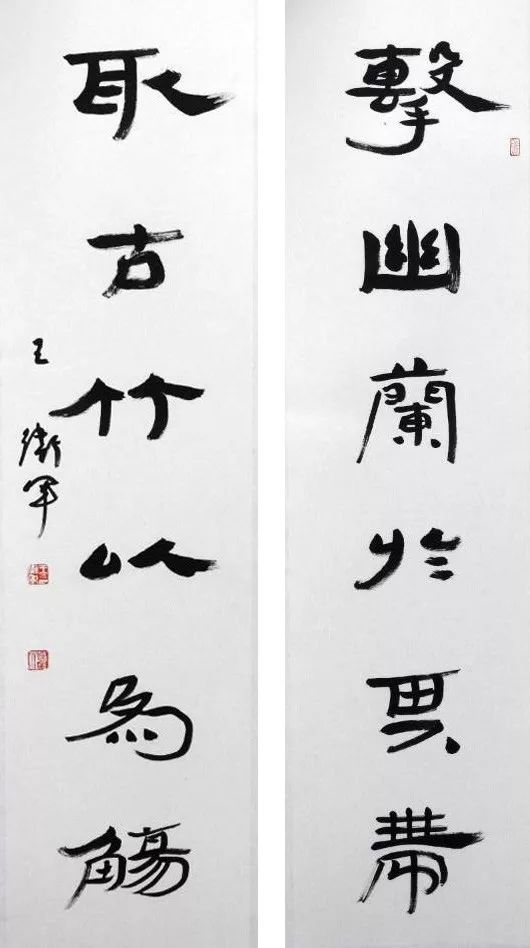 擊幽蘭於其帶
取古竹以為觴
王衛軍